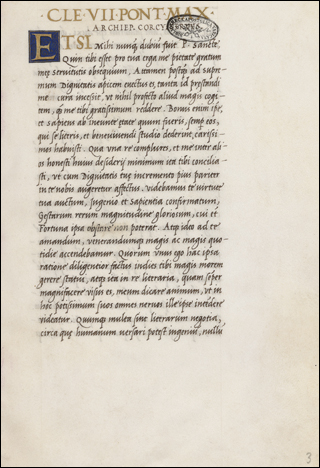 CLE·VII·PONT·MAX·
ARCHIEP· CORCY
ETSI Mihi nunq̃ dubiũ fuit P. Sancte
Quin tibi esset pro tua erga me pietate gratum
meę seruitutis obsequium, Attamen postq̃ ad supre-
mum Dignitatis apicem euectus es, tanta id pręstandi
me cura incessit, ut nihil profecto aliud magis cogi-
tem, q̃ me tibi gratissimum reddere. Bonus enim ipse,
et sapiens ab ineunte ętate quum fueris, semp eos,
qui se litteris, et beneuiuendi studio dederint, carissi-
mos habuisti. Qua una re complures, et me inter ali-
os honesti huius desiderij minimum ita tibi concilia-
sti, ut cum Dignitatis tuę incremento pius pariter
in te nobis augeretur affectus. Videbamus te uirtute
tua auctum, Ingenio et Sapientia confirmatum,
Gestarum rerum magnitudine gloriosum, cui et
Fortuna ipsa obstare non poterat. Atq ideo ad te
amandum, uenerandumq magis ac magis quo-
tidie accendebamur. Quorum unus ego hac ipsa
ratione diligentior factus indies tibi magis morem
gerere statui, atq ita in re literaria, quam semper
magnifacere uisus es, meum dicare animum, ut in
hoc potissimum suos omnes neruos ille ipse intendere
uideatur. Quumq multa sint literarum negotia,
circa quę humanum uersari potest ingenium, nullũ
3